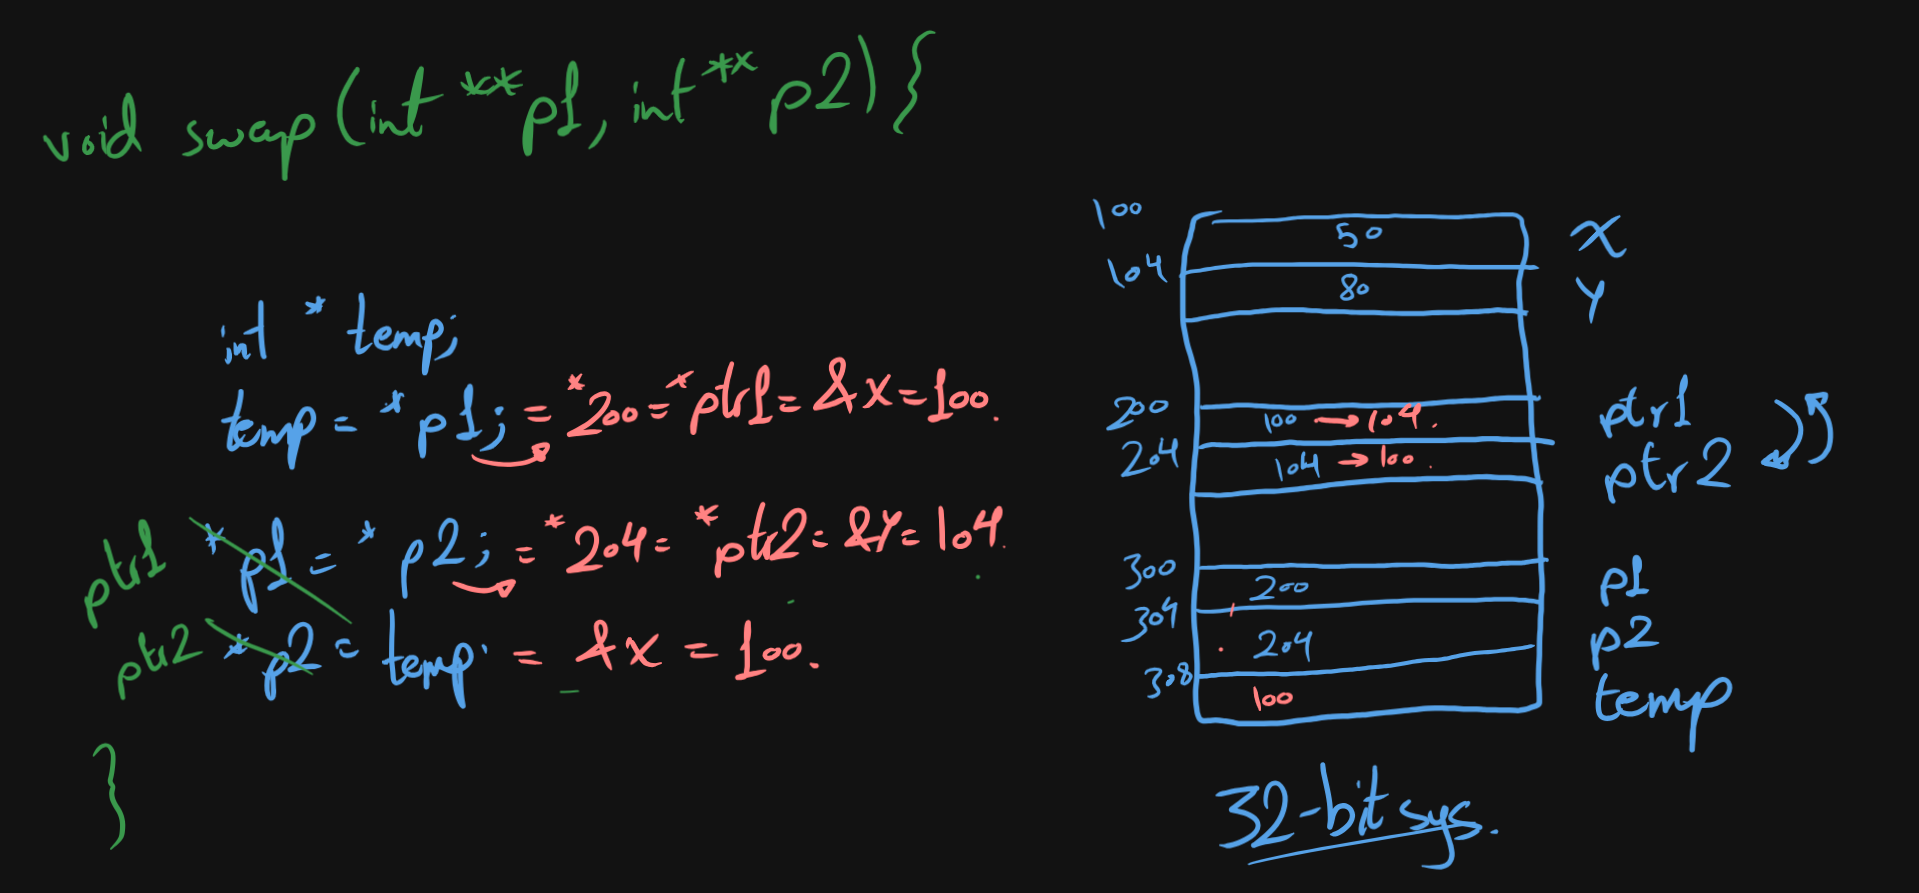 void swap (int **p1, int ** p2) {
int * temp;
temp = * p1; = *200 = *ptr1 = &X = 100.
ptr1 *p1 = * p2; = *204 = *ptr2 = &Y = 104
ptr2 *p2 = temp = &X = 100.
}
100 50 X
104 80 Y
200 100 → 104. ptr1
204 104 → 100. ptr2
300 200 p1
304 204 p2
308 100 temp
32-bit sys.